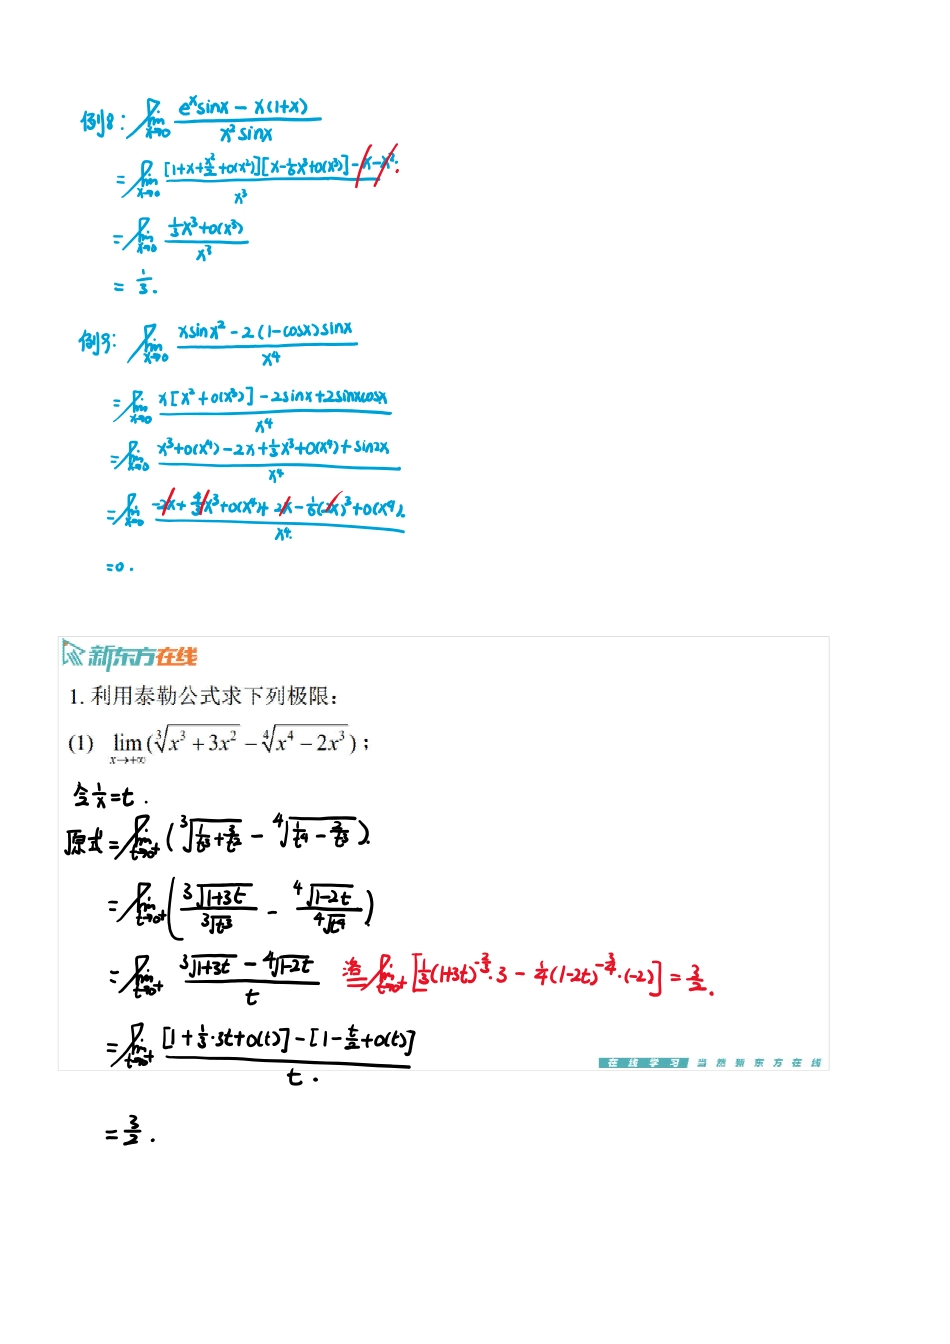 例8: lim x→0 (e^x sinx - x(1+x)) / (x² sinx)
= lim x→0 ([1+x+x²/2+o(x²)][x-1/6x³+o(x³)]-x-x².) / x³
= lim x→0 (1/3x³+o(x³)) / x³
= 1/3.
例9: lim x→0 (xsinx²-2(1-cosx)sinx) / x⁴
= lim x→0 (x[x²+o(x³)]-2sinx+2sinxcosx) / x⁴
= lim x→0 (x³+o(x⁴)-2x+1/3x³+o(x⁴)+sin2x) / x⁴
= lim x→0 (-2x+4/3x³+o(x⁴)+2x-1/6(2x)³+o(x⁴)) / x⁴.
=0.
新东方在线
1. 利用泰勒公式求下列极限：
(1) lim x→+∞ (∛(x³+3x²) - ∜(x⁴-2x³))；
令1/x=t.
原式= lim t→0+ (∛(1/t³+3/t²) - ∜(1/t⁴-2/t³)).
= lim t→0+ (∛(1+3t)/∛t³ - ∜(1-2t)/∜t⁴)
= lim t→0+ (∛(1+3t) - ∜(1-2t)) / t 洛= lim t→0+ [1/3(1+3t)^(-2/3)·3 - 1/4(1-2t)^(-3/4)·(-2)] = 3/2.
= lim t→0+ ([1+1/3·3t+o(t)]-[1-t/2+o(t)]) / t.
在线学习 当然新东方在线
= 3/2.